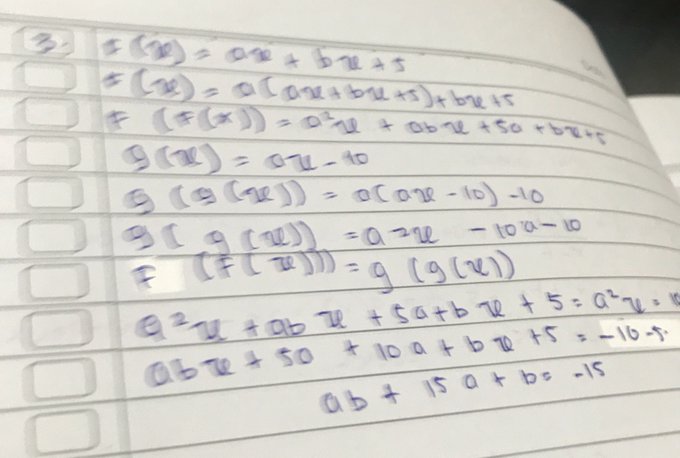 3. F(x) = ax + bx + 5
F(x) = a(ax + bx + 5) + bx + 5
F (F(x)) = a²x + abx + 5a + bx + 5
g(x) = ax - 10
g (g(x)) = a(ax - 10) - 10
g( g(x)) = a²x - 10a - 10
F (F(x))) = g (g(x))
a²x + abx + 5a + bx + 5 = a²x =
abx + 5a + 10a + bx + 5 = -10 - 5.
ab + 15a + b = -15